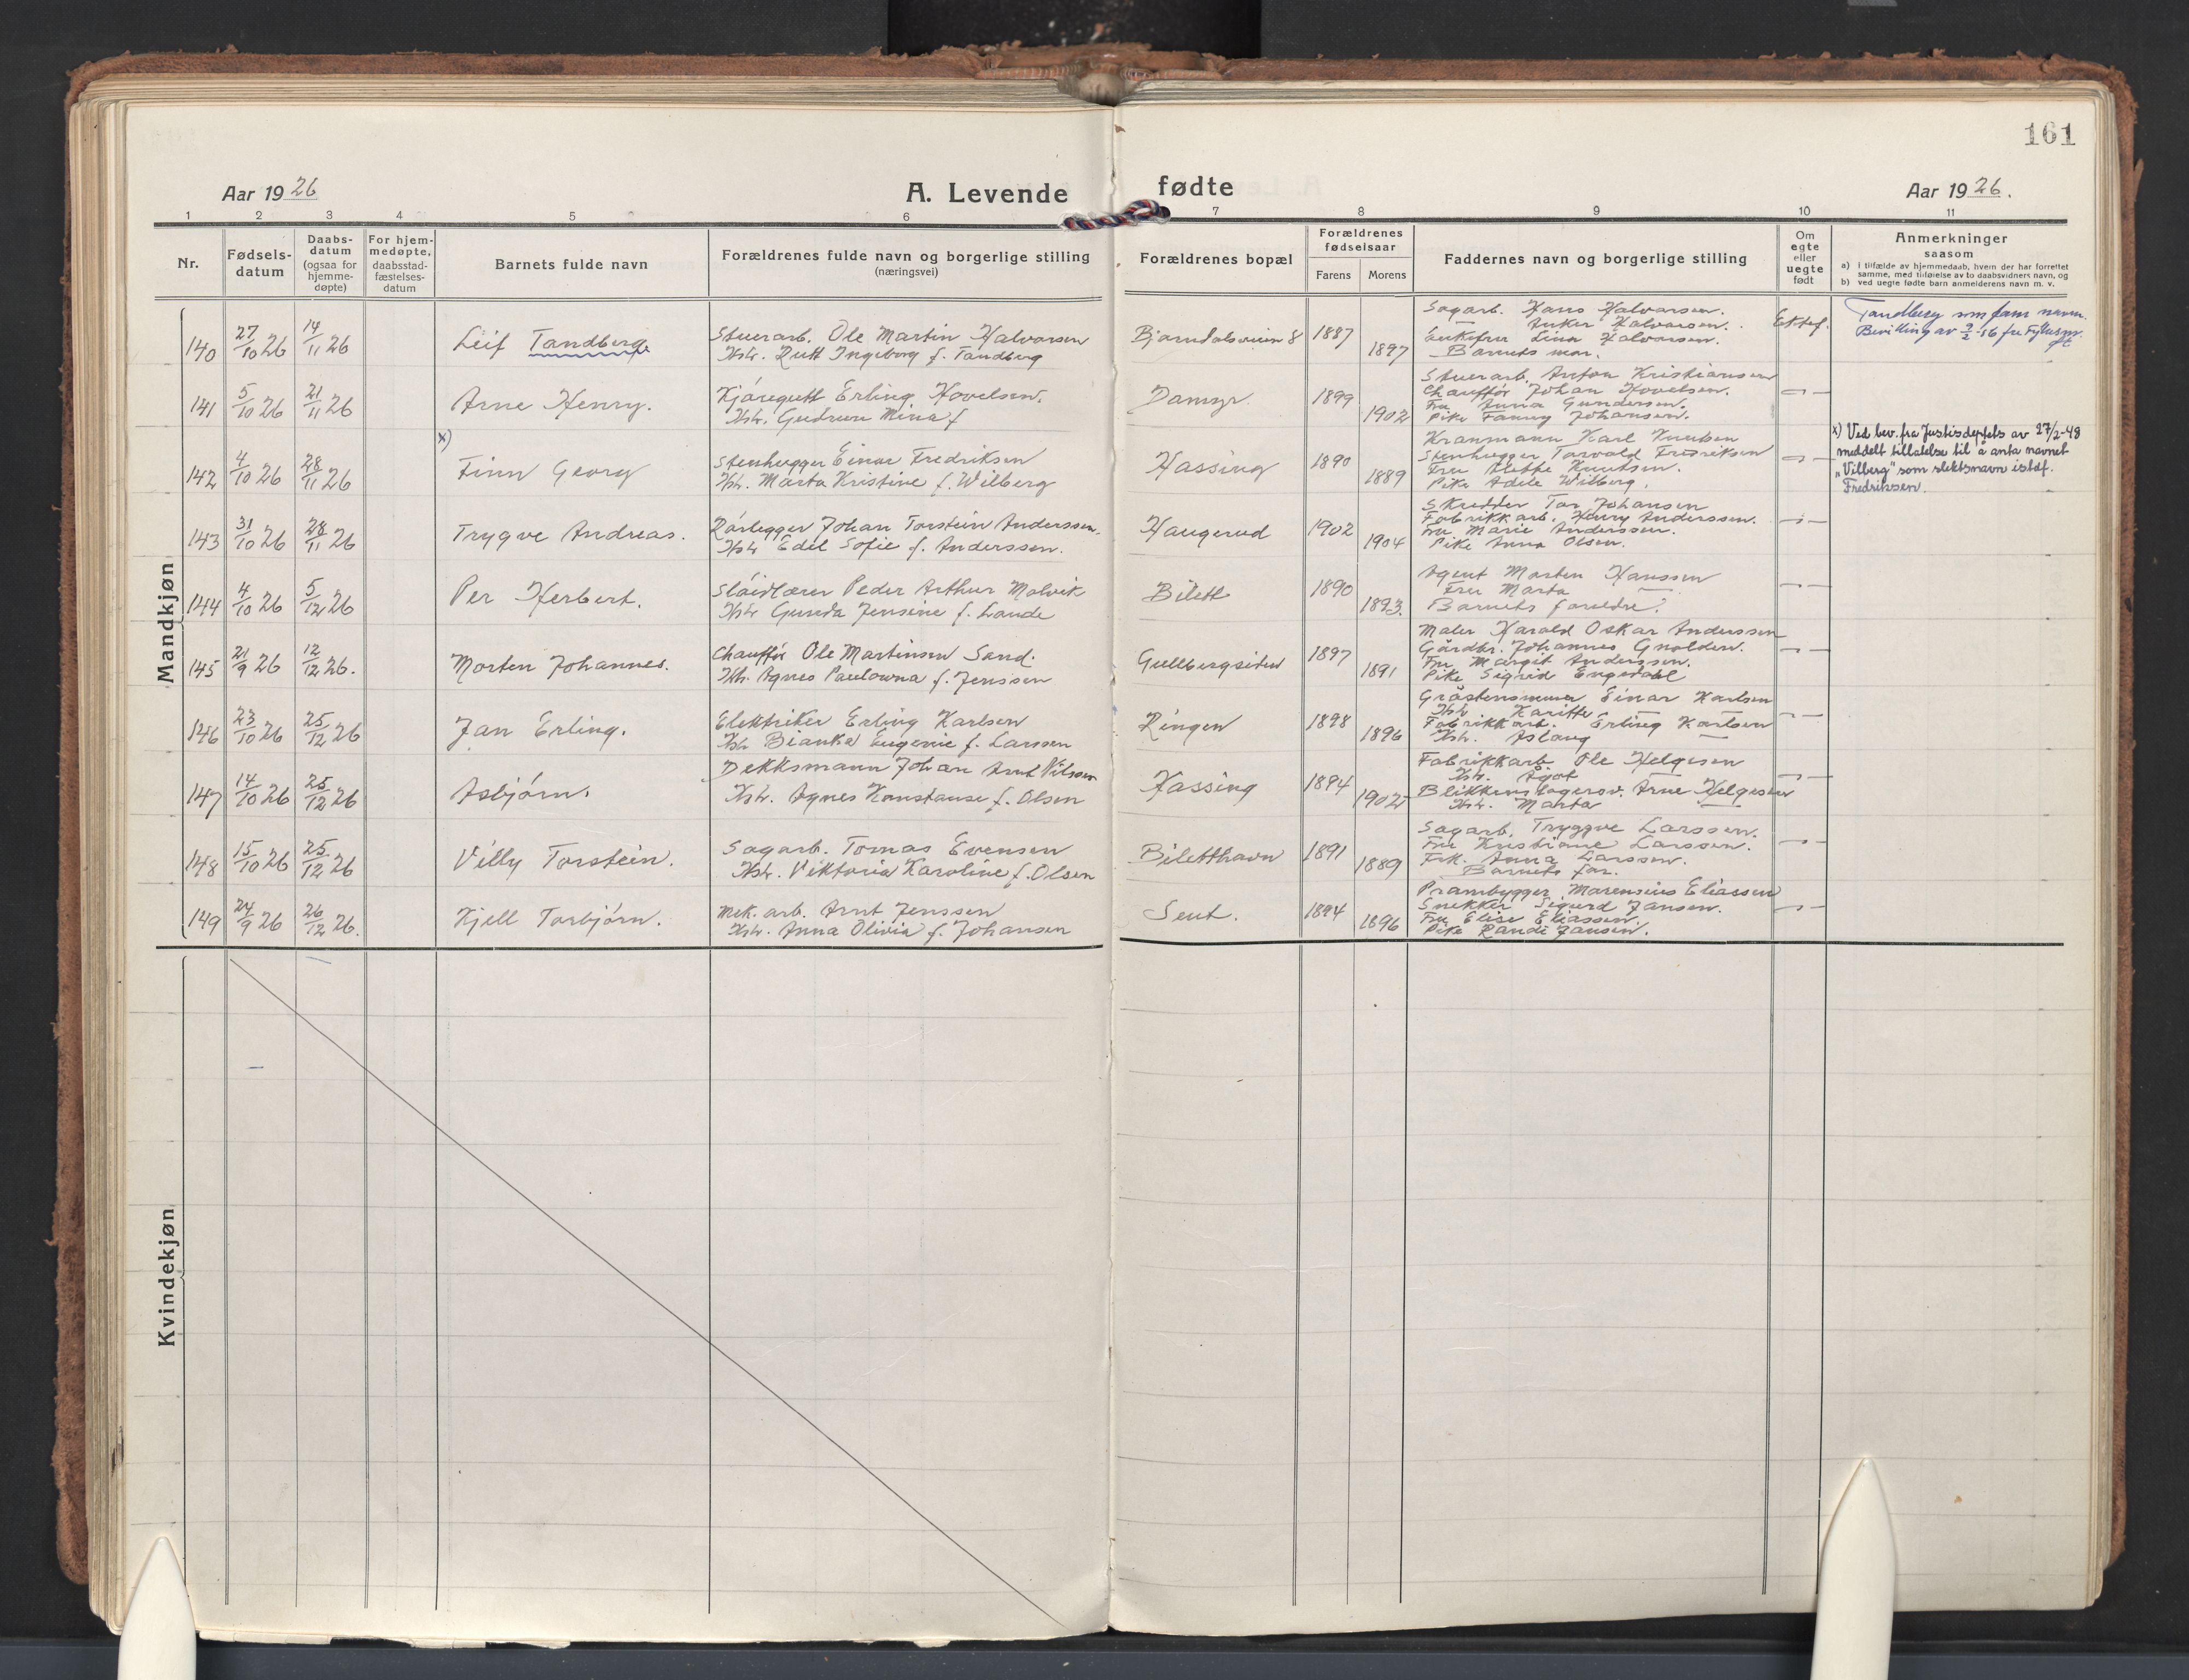 161
Aar 1926
A. Levende fødte
Aar 1926.
1 2 3 4 5 6 7 8 9 10 11
Nr.
Fødsels-
datum
Daabs-
datum
(ogsaa for
hjemme-
døpte)
For hjem-
medøpte,
daabsstad-
fæstelses-
datum
Barnets fulde navn
Forældrenes fulde navn og borgerlige stilling
(næringsvei)
Forældrenes bopæl
Forældrenes
fødselsaar
Farens Morens
Faddernes navn og borgerlige stilling
Om
egte
eller
uegte
født
Anmerkninger
saasom
a) i tilfælde av hjemmedaab, hvem der har forrettet
samme, med tilføielse av to daabsvidners navn, og
b) ved uegte fødte barn anmelderens navn m. v.
Mandkjøn
140 27/10 26 14/11 26 Leif Tandberg
Stuerarb. Ole Martin Halvorsen
Hstr. Rutt Ingeborg f. Tandberg
Bjørndalsveien 8 1887 1897
Sagarb. Hans Halvorsen.
— Anker Halvorsen.
Enkefru Lina Halvorsen.
Barnets mor.
Ektef.
Tandberg som fam navn.
Bevilling av 9/2-56 fra Fylkesm.
141 5/10 26 21/11 26 Arne Henry.
Kjøregutt Erling Hovelsen.
Hstr. Gudrun Mina f
Damyr 1899 1902
Stuerarb. Anton Kristiansen
Chauffør Johan Hovelsen.
Fru Anna Gundersen.
Pike Fanny Johansen.
x)
142 4/10 26 28/11 26 Finn Georg
Stenhugger Einar Fredriksen
Hstr. Marta Kristine f. Wilberg
Hassing 1890 1889
Kranmann Karl Knutsen
Stenhugger Torvald Fredriksen
Fru Alette Knutsen.
Pike Adele Wilberg.
x) Ved bev. fra Justisdeptets av 27/2-48
meddelt tillatelse til å anta navnet
"Vilberg" som slektsnavn istdf.
Fredriksen.
143 31/10 26 28/11 26 Trygve Andreas.
Rørlegger Johan Torstein Anderssen.
Hstr Edel Sofie f. Anderssen.
Haugerud 1902 1904
Skredder Tor Johansen
Fabrikkarb. Henry Anderssen.
Fru. Marie Anderssen.
Pike Anna Olsen.
144 4/10 26 5/12 26 Per Herbert.
Sløidlærer Peder Arthur Malvik
Hstr Gunda Jensine f. Lande
Bilett 1890 1893.
Agent Morten Hanssen
Fru Marta —
Barnets foreldre.
145 21/9 26 12/12 26. Morten Johannes.
Chauffør Ole Martinsen Sand.
Hstr. Agnes Paulowna f. Jenssen
Gullbergsiden 1897 1891
Maler Harald Oskar Anderssen
Gårdbr. Johannes Gnolden.
Fru Margit Anderssen.
Pike Sigrid Engedahl
146 23/10 26 25/12 26 Jan Erling.
Elektriker Erling Karlsen
Hstr Bianka Eugenie f. Larssen
Ringen 1898 1896
Gråstensmurer Einar Karlsen
Hstr Karitte —
Fabrikkarb. Erling Karlsen
Hstr. Aslaug —
147 14/10 26 25/12 26 Asbjørn.
Dekksmann Johan Arnt Nilssen
Hstr. Agnes Konstanse f. Olsen
Hassing 1894 1902
Fabrikkarb. Ole Helgesen
Hstr. Ågot —
Blikkenslagersv. Arne Helgesen
Hstr. Marta —
148 15/10 26 25/12 26 Villy Torstein.
Sagarb. Tomas Evensen
Hstr. Viktoria Karoline f. Olsen
Biletthavn 1891 1889
Sagarb. Tryggve Larssen.
Fru Kristiane Larssen.
Frk. Anna Larssen.
Barnets far.
149 24/9 26 26/12 26. Kjell Torbjørn.
Mek. arb. Arnt Jenssen
Hstr. Anna Olivia f. Johansen
Sent. 1894 1896
Prambygger Marensius Eliassen
Snekker Sigurd Jansen.
Fru Elise Eliassen.
Pike Randi Jansen.
Kvindekjøn